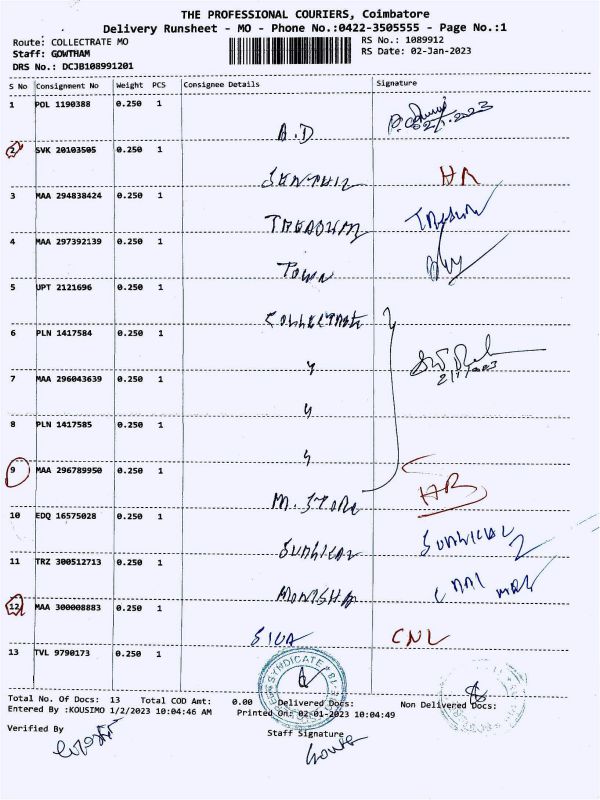 THE PROFESSIONAL COURIERS, Coimbatore
Delivery Runsheet - MO - Phone No.:0422-3505555 - Page No.:1
Route: COLLECTRATE MO RS No.: 1089912
Staff: GOWTHAM RS Date: 02-Jan-2023
DRS No.: DCJB108991201
S No Consignment No Weight PCS Consignee Details Signature
1 POL 1190388 0.250 1
A.D 02/1/2023
2 SVK 20103505 0.250 1
SENTHIL HR
3 MAA 294838424 0.250 1
TREASURY TREASURY
4 MAA 297392139 0.250 1
TOWN
5 UPT 2121696 0.250 1
COLLECTRATE
6 PLN 1417584 0.250 1
2/1/2023
7 MAA 296043639 0.250 1
8 PLN 1417585 0.250 1
9 MAA 296789950 0.250 1
M. STORE
10 EDQ 16575028 0.250 1
SURGICAL SURGICAL
11 TRZ 300512713 0.250 1
MONISHA
12 MAA 300008883 0.250 1
SIVA CNL
13 TVL 9790173 0.250 1
SYNDICATE
Total No. Of Docs: 13 Total COD Amt: 0.00 Delivered Docs: Non Delivered Docs:
Entered By :KOUSIMO 1/2/2023 10:04:46 AM Printed On: 02-01-2023 10:04:49
Verified By Staff Signature